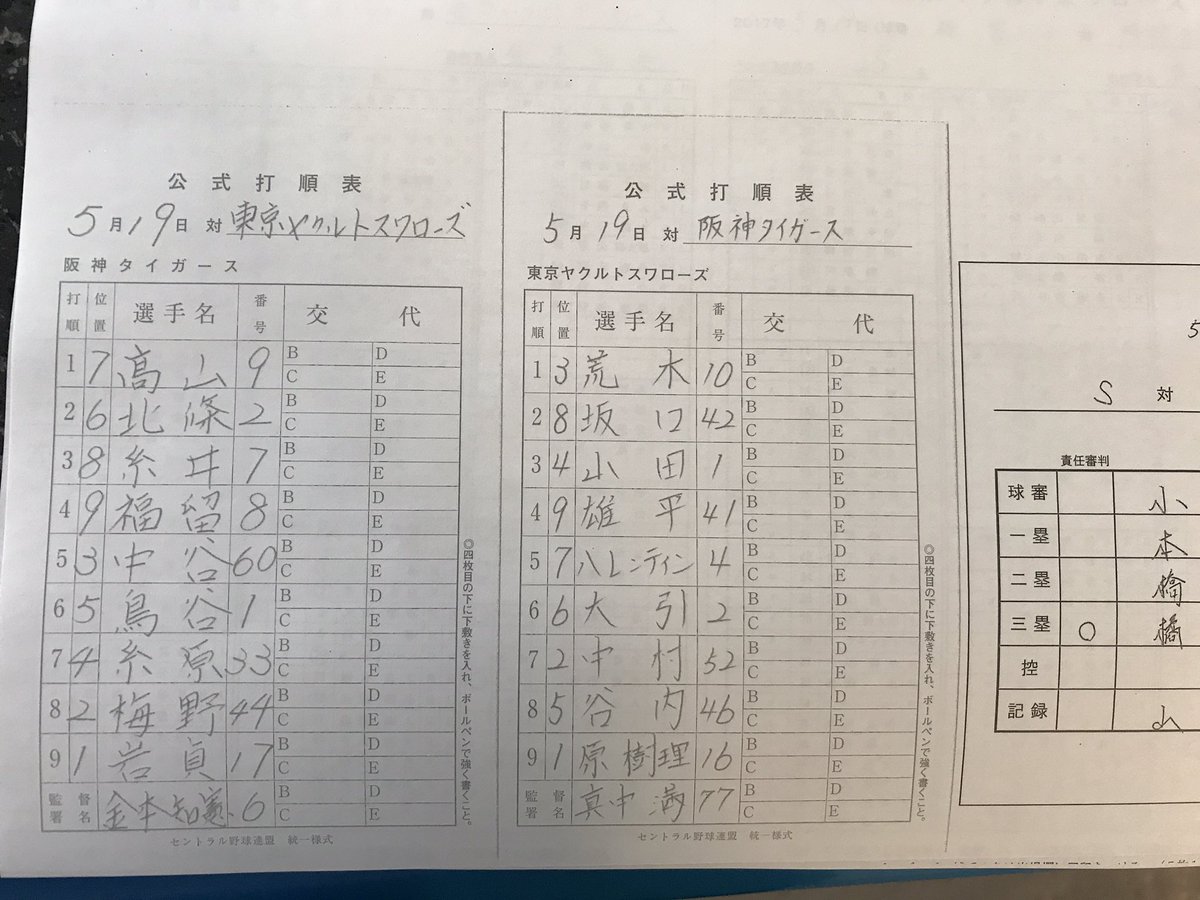 公式打順表
5月19日 対 東京ヤクルトスワローズ
阪神タイガース
打順 位置 選手名 番号 交代
1 7 高山 9 B D C E
2 6 北條 2 B D C E
3 8 糸井 7 B D C E
4 9 福留 8 B D C E
5 3 中谷 60 B D C E
6 5 鳥谷 1 B D C E
7 4 糸原 33 B D C E
8 2 梅野 44 B D C E
9 1 岩貞 17 B D C E
監督署名 金本知憲 6 B D C E
◎四枚目の下に下敷きを入れ、ボールペンで強く書くこと。
セントラル野球連盟 統一様式
公式打順表
5月19日 対 阪神タイガース
東京ヤクルトスワローズ
打順 位置 選手名 番号 交代
1 3 荒木 10 B D C E
2 8 坂口 42 B D C E
3 4 山田 1 B D C E
4 9 雄平 41 B D C E
5 7 バレンティン 4 B D C E
6 6 大引 2 B D C E
7 2 中村 52 B D C E
8 5 谷内 46 B D C E
9 1 原樹理 16 B D C E
監督署名 真中満 77 B D C E
◎四枚目の下に下敷きを入れ、ボールペンで強く書くこと。
セントラル野球連盟 統一様式
5
S 対
責任審判
球審 小
一塁 本
二塁 橋
三塁 ○ 橘
控
記録 山